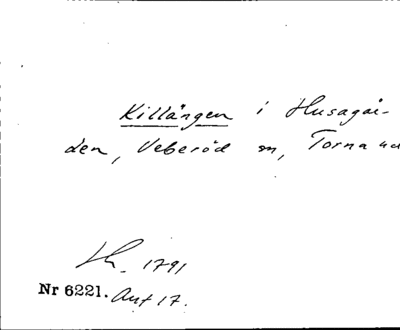 Killängen i Husagår-
den, Veberöd sn, Torna
1791
Nr 6221. Aut 17.